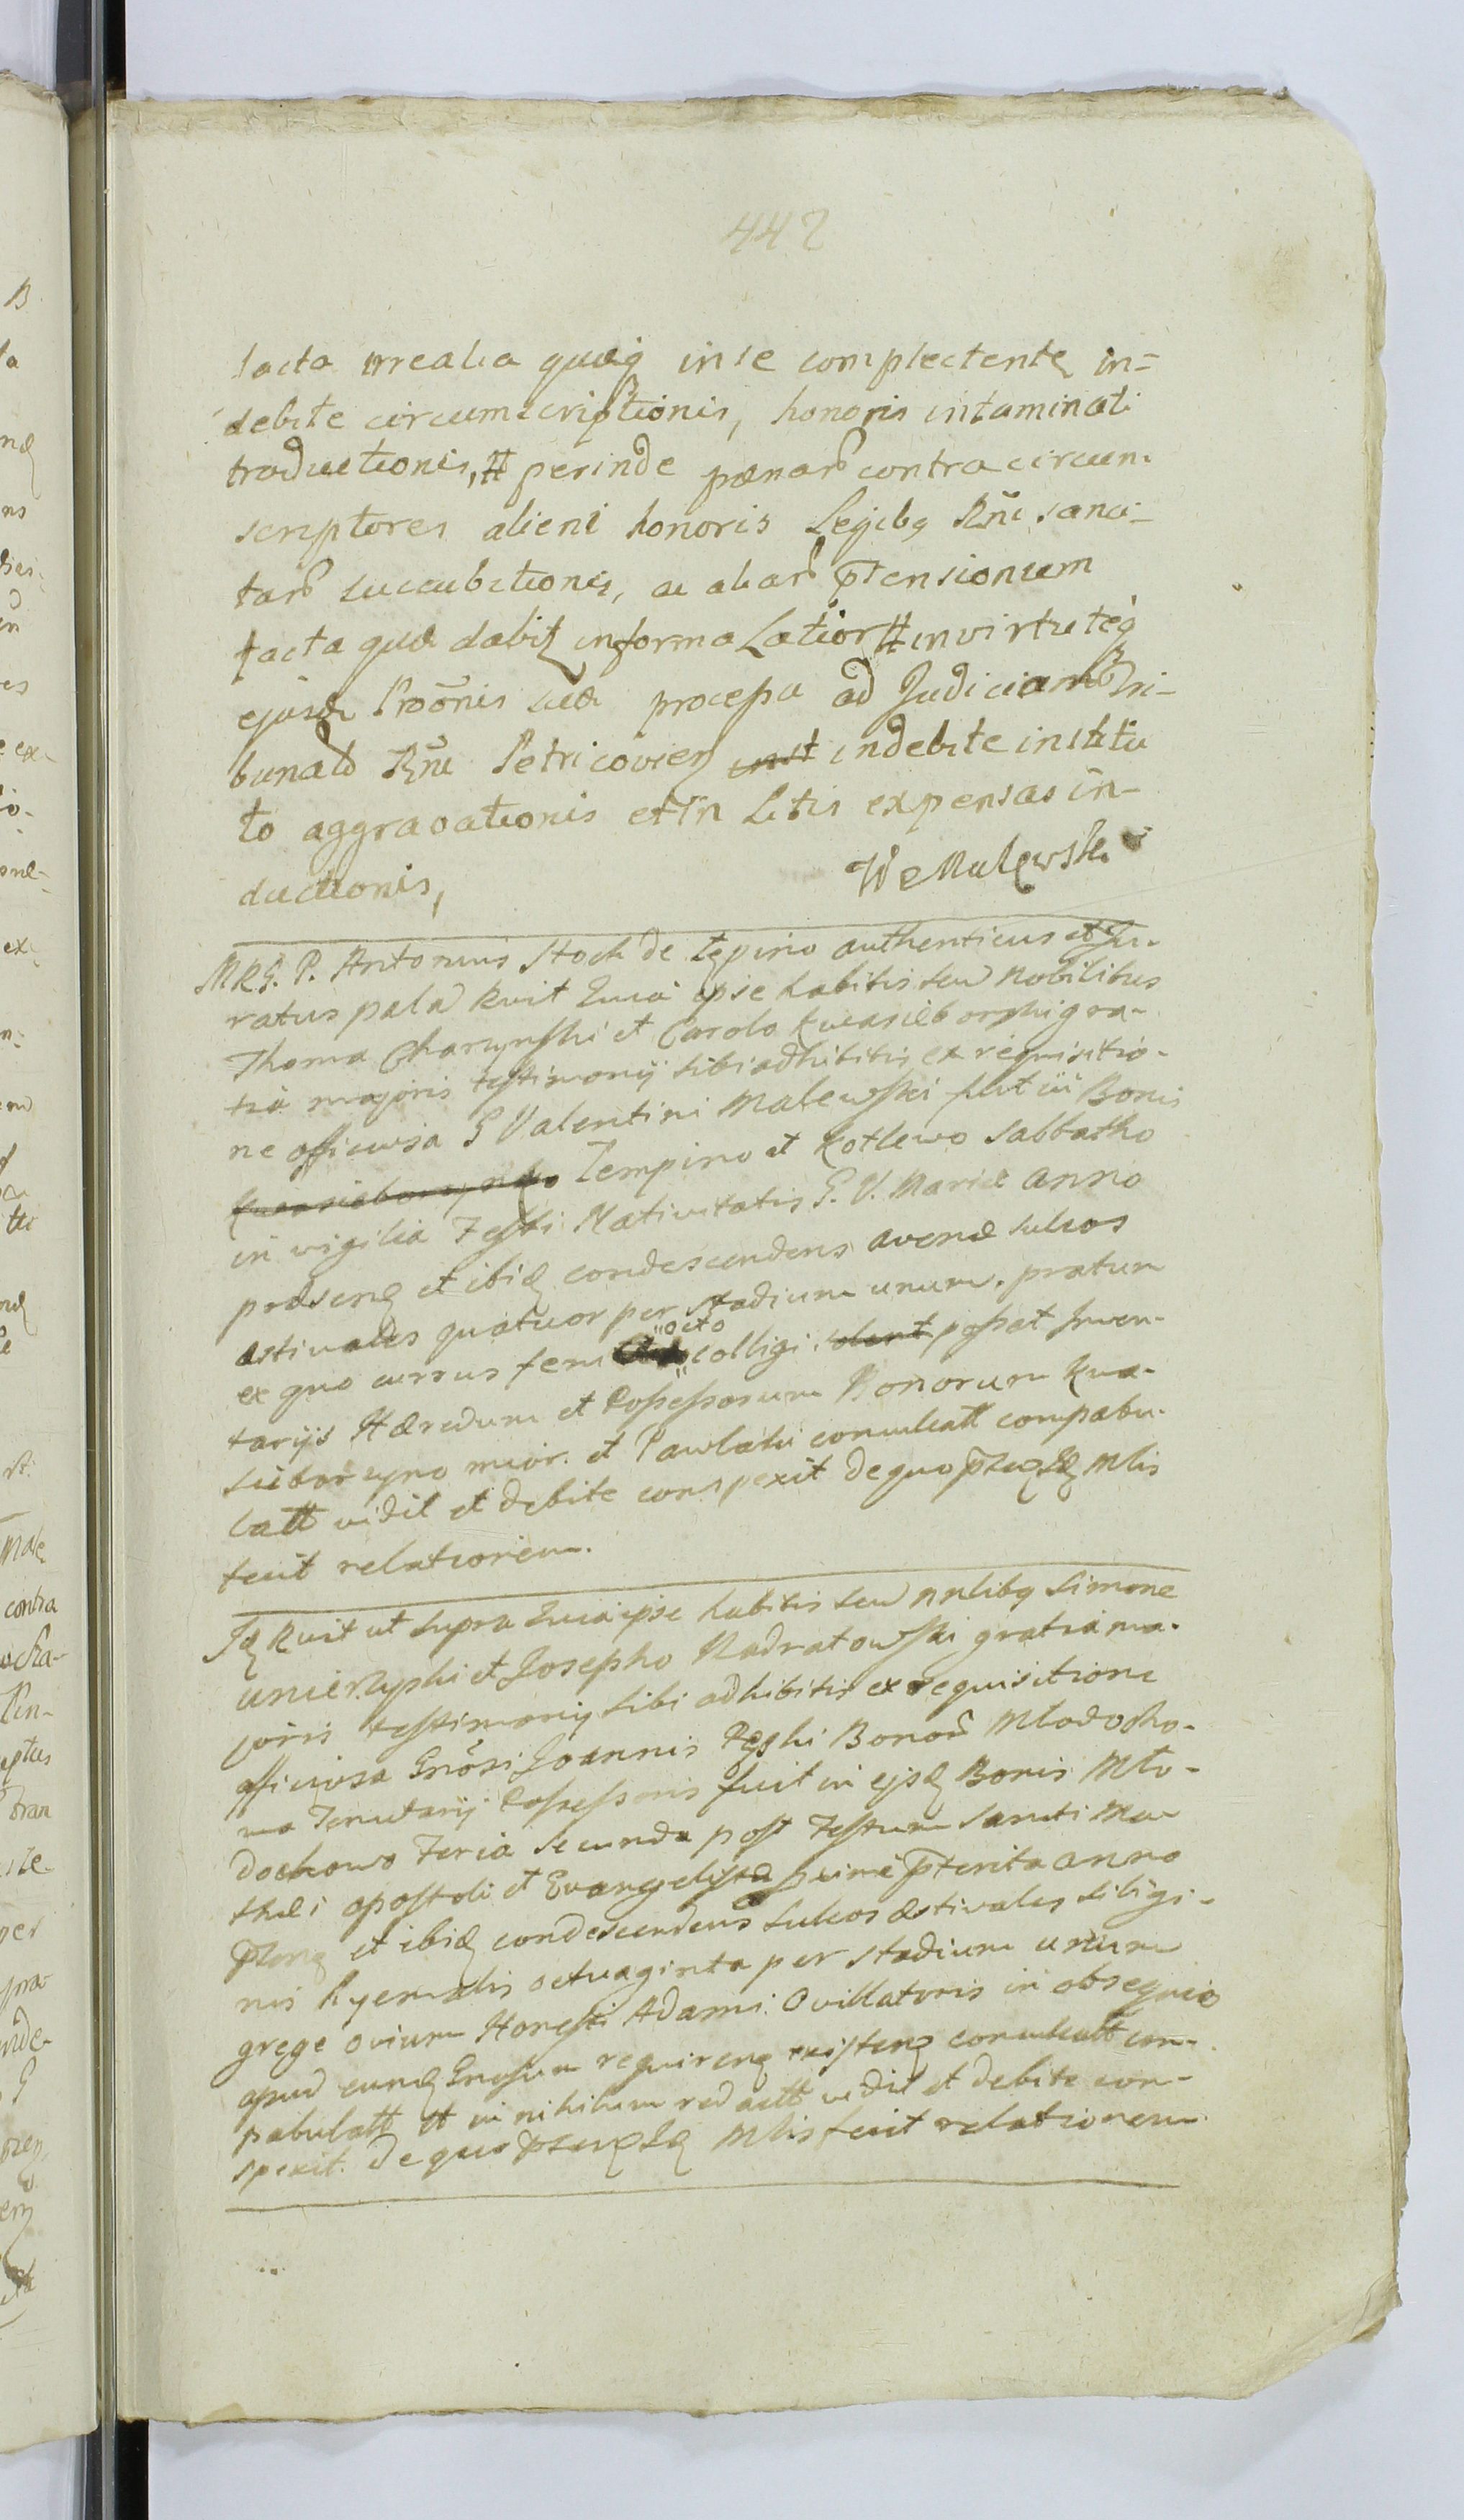 442
facta irrealia quæq in se complectentę in-
debite circumscriptionis, honoris intaminati
traductionis, tt perinde pænar contra circum
scriptores alieni honoris Legibq Rñi sanci-
tar succubitionis, ac aliar ptensionum
facta quæ dabit in forma Latior tt in virtuteq
ejusd Proõnis suæ processu ad Judicium Tri-
bunal Rñi Petricovien inst indebite institu
to aggravationis et in Litis expensas in-
ductionis,
W Malewski
MRG. P. Antonius Stoch de Tępino authenticus et Ju-
ratus pala Rvit Quia ipse habitis secu Nobilibus
Thoma Charzynski et Carolo Kwasieborski gra-
tia majoris testimonij sibi adhibitis ex requisitio-
ne officiosa G Valentini Malewski fuit in Bonis
Kwasieborzynko Tempino et Kotlewo Sabbatho
in vigilia Festi Nativitatis B. V. Mariæ anno
præsenę et ibiq condescendens avenæ sulcos
æstivales quatuor per stadium unum. pratum
ex quo currus feni octo colligi solent possat Inven-
tarijs Hæredum et Possessorum Bonorum Kwa-
sieborzyno mior. et Pawlaki conculcatt compabu-
latt vidit et debite conspexit de quo pręę Mlis
fecit relationem.
Idę Rvit ut supra Quia ipse habitis secu nnlibq Simone
Unierzyski et Josepho Nadratowski gratia ma-
joris testimonij sibi adhibitis ex requisitione
officiosa Gnõsi Joannis Pęski Bonor Młodocho-
wo Tenutarij Possessoris fuit in ejsdę Bonis Mło-
dochowo Feria secunda post Festum Sancti Mat
thæi apostoli et Evangelistæ pterita anno
pñę et ibiq condescendens sulcos æstivales siligi-
nis hyemalis octuaginta per stadium unum
grege ovium Honesti Adami Ovillatoris in obsequio
apud eundę Gnosum requirenę existenę conculcatt com-
pabulatt tt in nihilum redactt vidit et debite con-
spexit. de quo Mlis fecit relationem